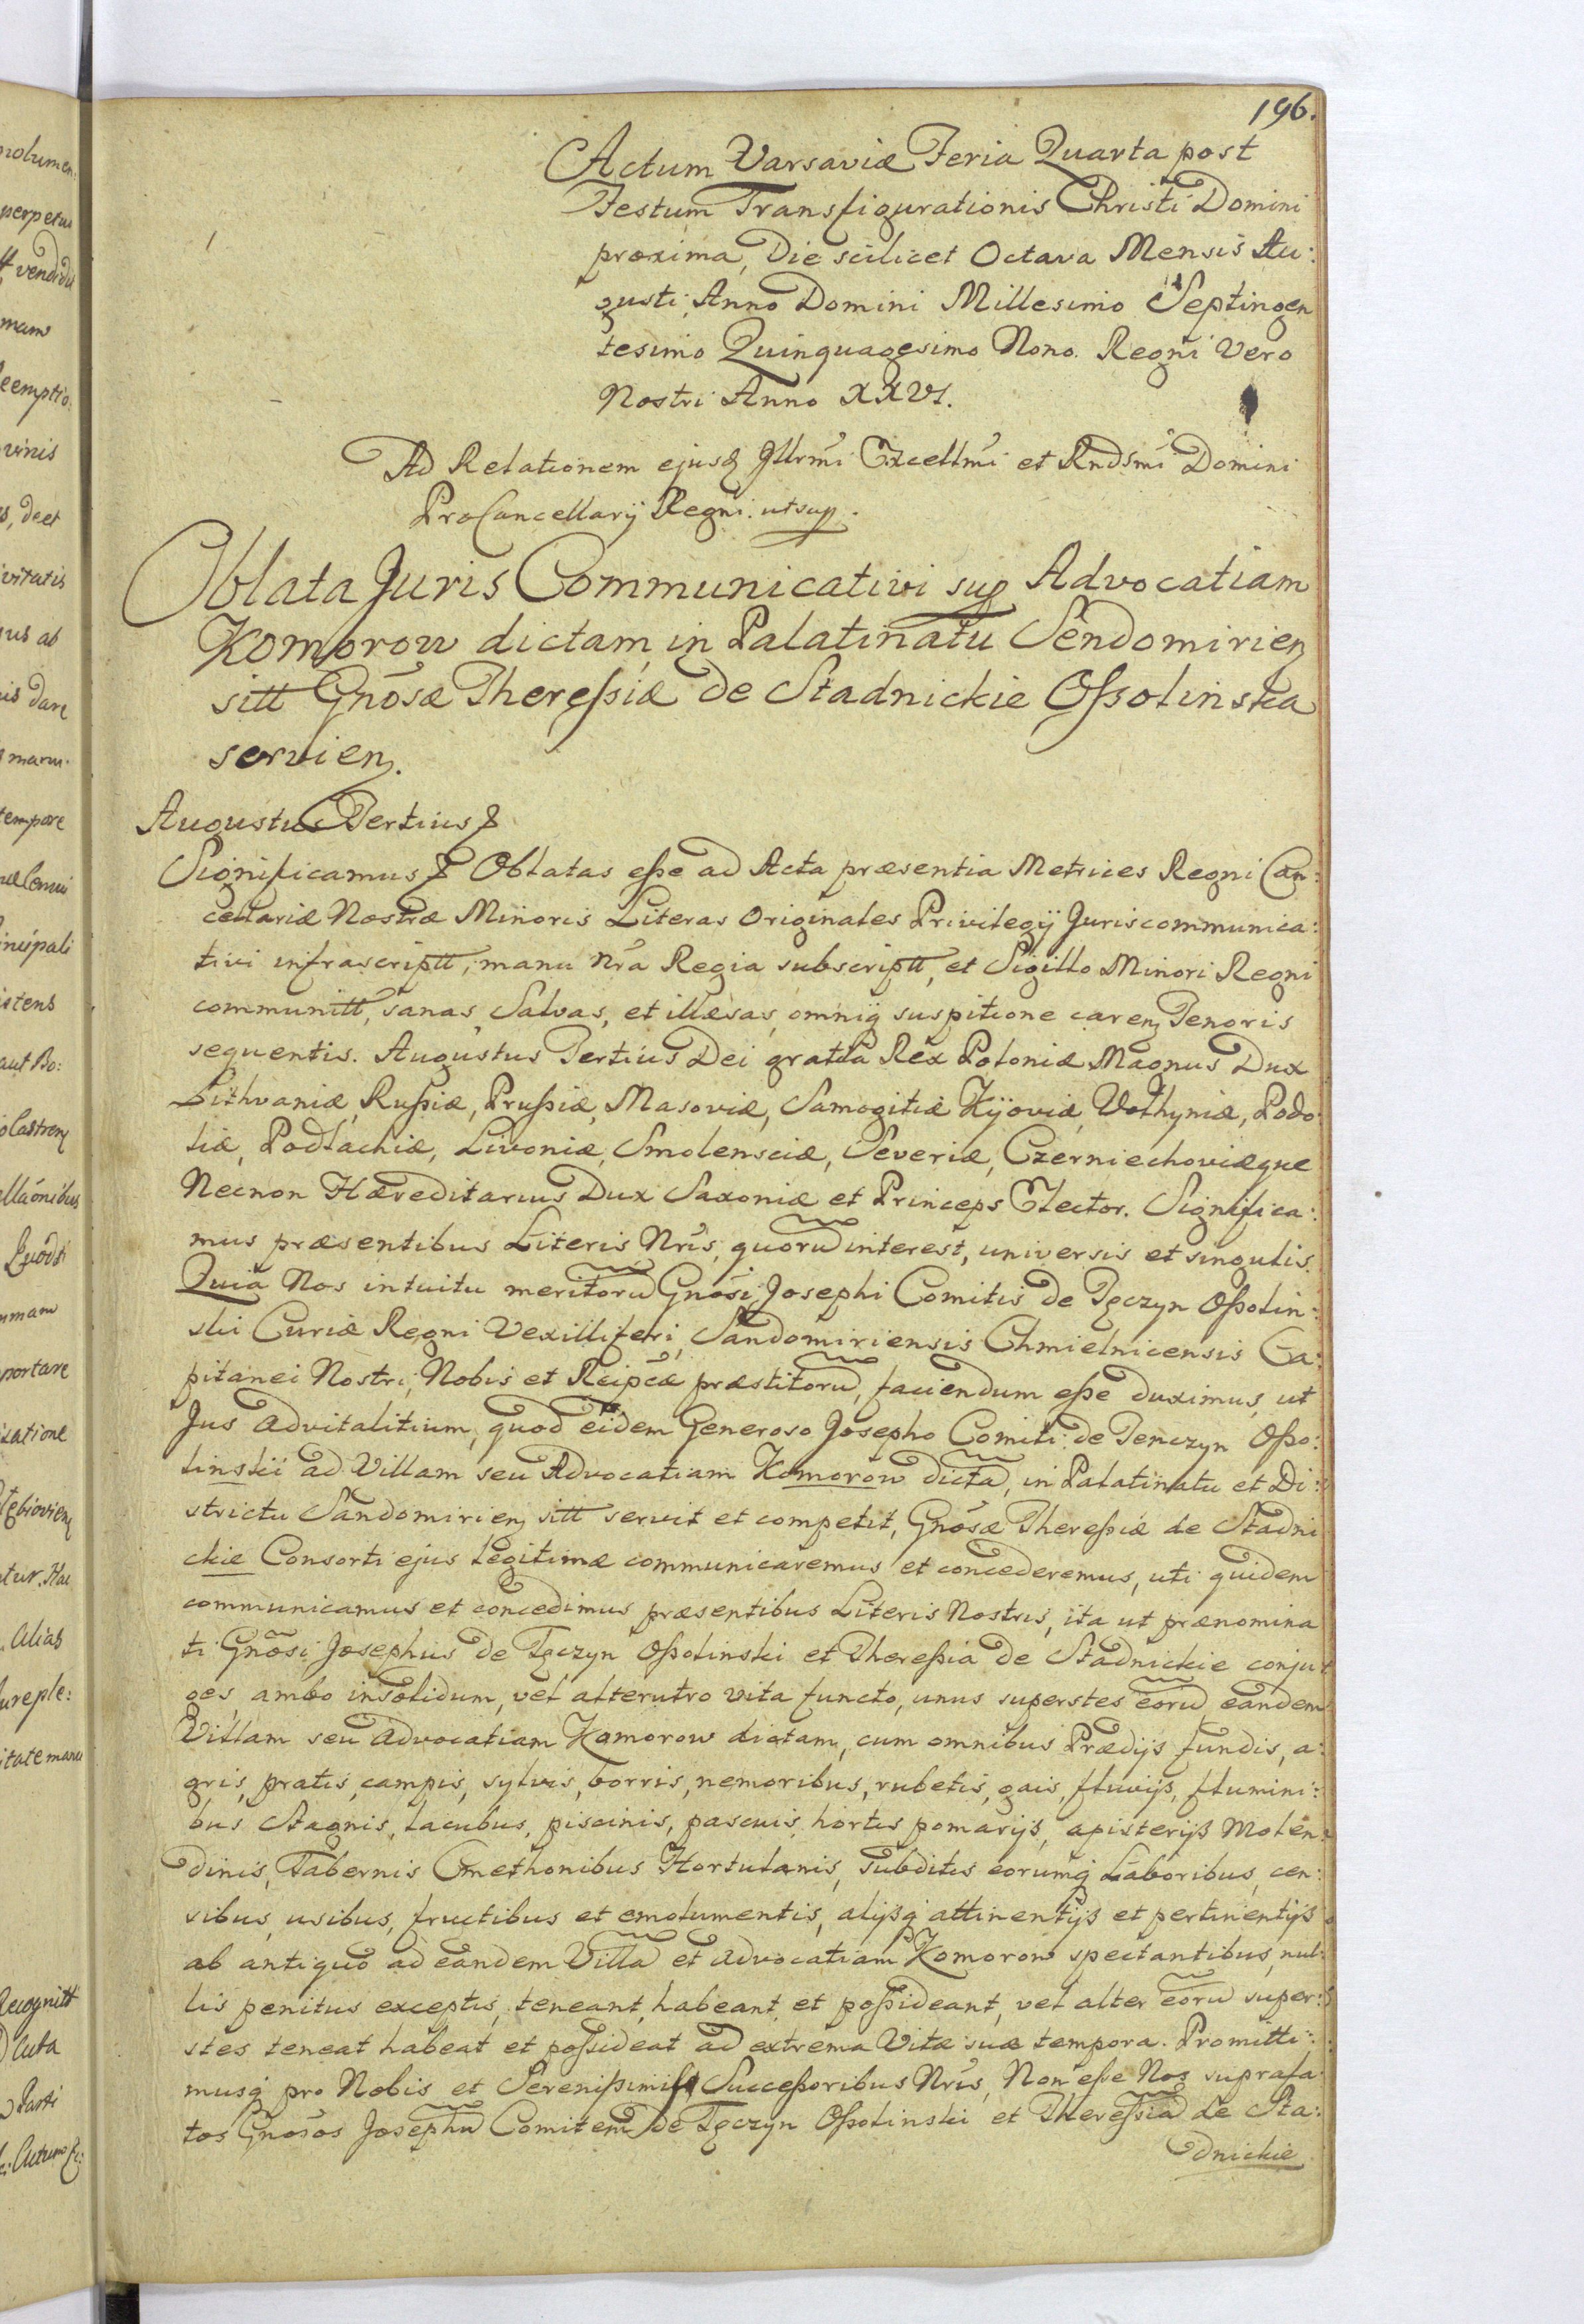 196.
Actum Varsaviæ Feria Quarta post
Festum Transfigurationis Christi Domini
proxima, Die scilicet Octava Mensis Au:
gusti, Anno Domini Millesimo Septingen
tesimo Quinquagesimo Nono. Regni Vero
Nostri Anno XXVI.
Ad Relationem ejusq Jllrmi Excellmi et Rndsmi Domini
ProCancellarij Regni. ut sup.
Oblata Juris Communicativi sup Advocatiam
Komorow dictam in Palatinatu Sendomirien
sitt Gnosæ Theressiæ de Stadnickie Ossolinska
servien.
Augustus Tertius &
Significamus & Oblatas esse ad Acta præsentia Metrices Regni Can:
cellariæ Nostræ Minoris Literas Originales Privilegij Juris communica:
tivi infrascriptt, manu Nra Regia subscriptt, et Sigillo Minori Regni
communitt, sanas, Salvas, et illæsas, omniq suspitione caren Tenoris
sequentis. Augustus Tertius Dei gratia Rex Poloniæ Magnus Dux
Lithvaniæ, Russiæ, Prussiæ, Masoviæ, Samogitiæ Kijoviæ, Volhyniæ, Podo
liæ, Podlachiæ, Livoniæ, Smolensciæ, Severiæ, Czerniechoviæque
Necnon Hæreditarius Dux Saxoniæ et Princeps Elector. Significa:
mus præsentibus Literis Nris, quoru interest, universis et singulis.
Quia Nos intuitu meritoru Gnosi Josephi Comitis de Tęczyn Ossolin:
ski Curiæ Regni Vexilliferi, Sandomiriensis Chmielnicensis Ca:
pitanei Nostri, Nobis et Reipcæ præstitoru, faciendum esse duximus, ut
Jus advitalitium, quod eidem Generoso Josepho Comiti de Tenczyn Osso:
linskii ad Villam seu Advocatiam Komorow dicta, in Palatinatu et Di:
strictu Sandomirien sitt servit et competit, Gnosæ Theressiæ de Stadni
ckie Consorti ejus Legitimæ communicaremus et concederemus, uti quidem
communicamus et concedimus præsentibus Literis Nostris, ita ut prænomina
ti Gnosi Josephus de Tęczyn Ossolinski et Theressia de Stadnickie conju
ges, ambo insolidum, vel alterutro vita functo, unus superstes eoru eandem
Villam seu advocatiam Komorow dictam, cum omnibus Prædijs fundis, a:
gris, pratis, campis, sylvis, borris, nemoribus, rubetis, gais, fluvijs, flumini:
bus Stagnis, lacubus, piscinis, pascuis, hortis pomarijs, apisterijs Molen
dinis, Tabernis Cmethonibus Hortulanis, subditis eorumq Laboribus, cen:
sibus, usibus, fructibus et emolumentis, alijsq attinentijs et pertinentijs
ab antiquo ad eandem Villa et advocatiam Komorow spectantibus, nul
lis penitus exceptis, teneant, habeant, et possideant, vel alter eoru super:
stes teneat habeat et possideat ad extrema Vitæ suæ tempora. Promitti:
musq pro Nobis et Serenissimis Successoribus Nris, Non esse Nos suprafa
tos Gnosos Josephu Comitem de Tęczyn Ossolinski et Theressia de Sta:
dnickie